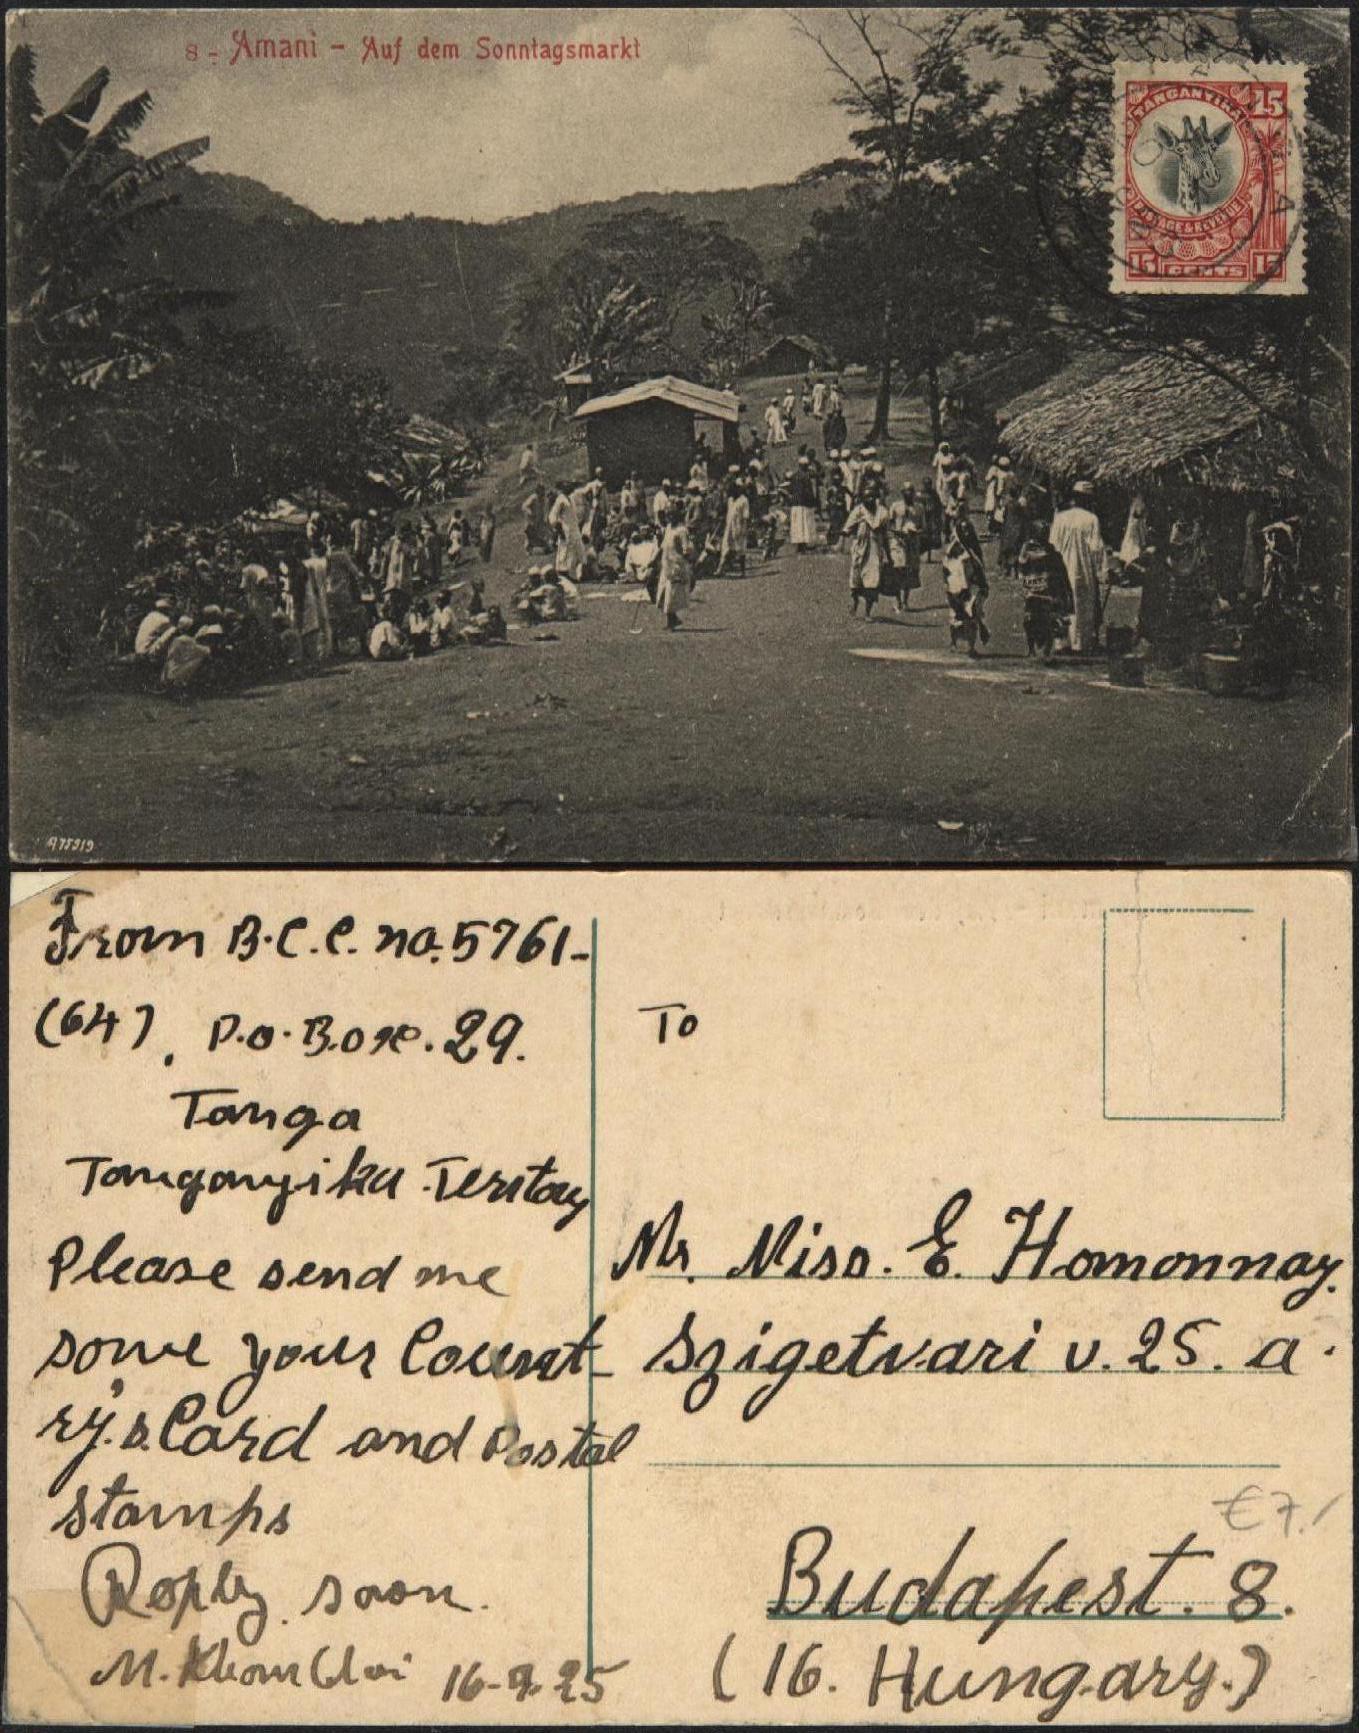 8 - Amani - Auf dem Sonntagsmarkt
TANGANYIKA
15
POSTAGE & REVENUE
15 CENTS 15
A75919
From B.C.C. no. 5761-
(64), P.O. Box. 29.
Tanga
Tanganyika Teritory
Please send me
some your Count-
ry's Card and Postal
stamps
Reply soon.
M. 16-9-25
To
Mr. Miss. E. Homonnay.
Szigetvari v. 25. a.
€7.
Budapest. 8.
(16. Hungary.)